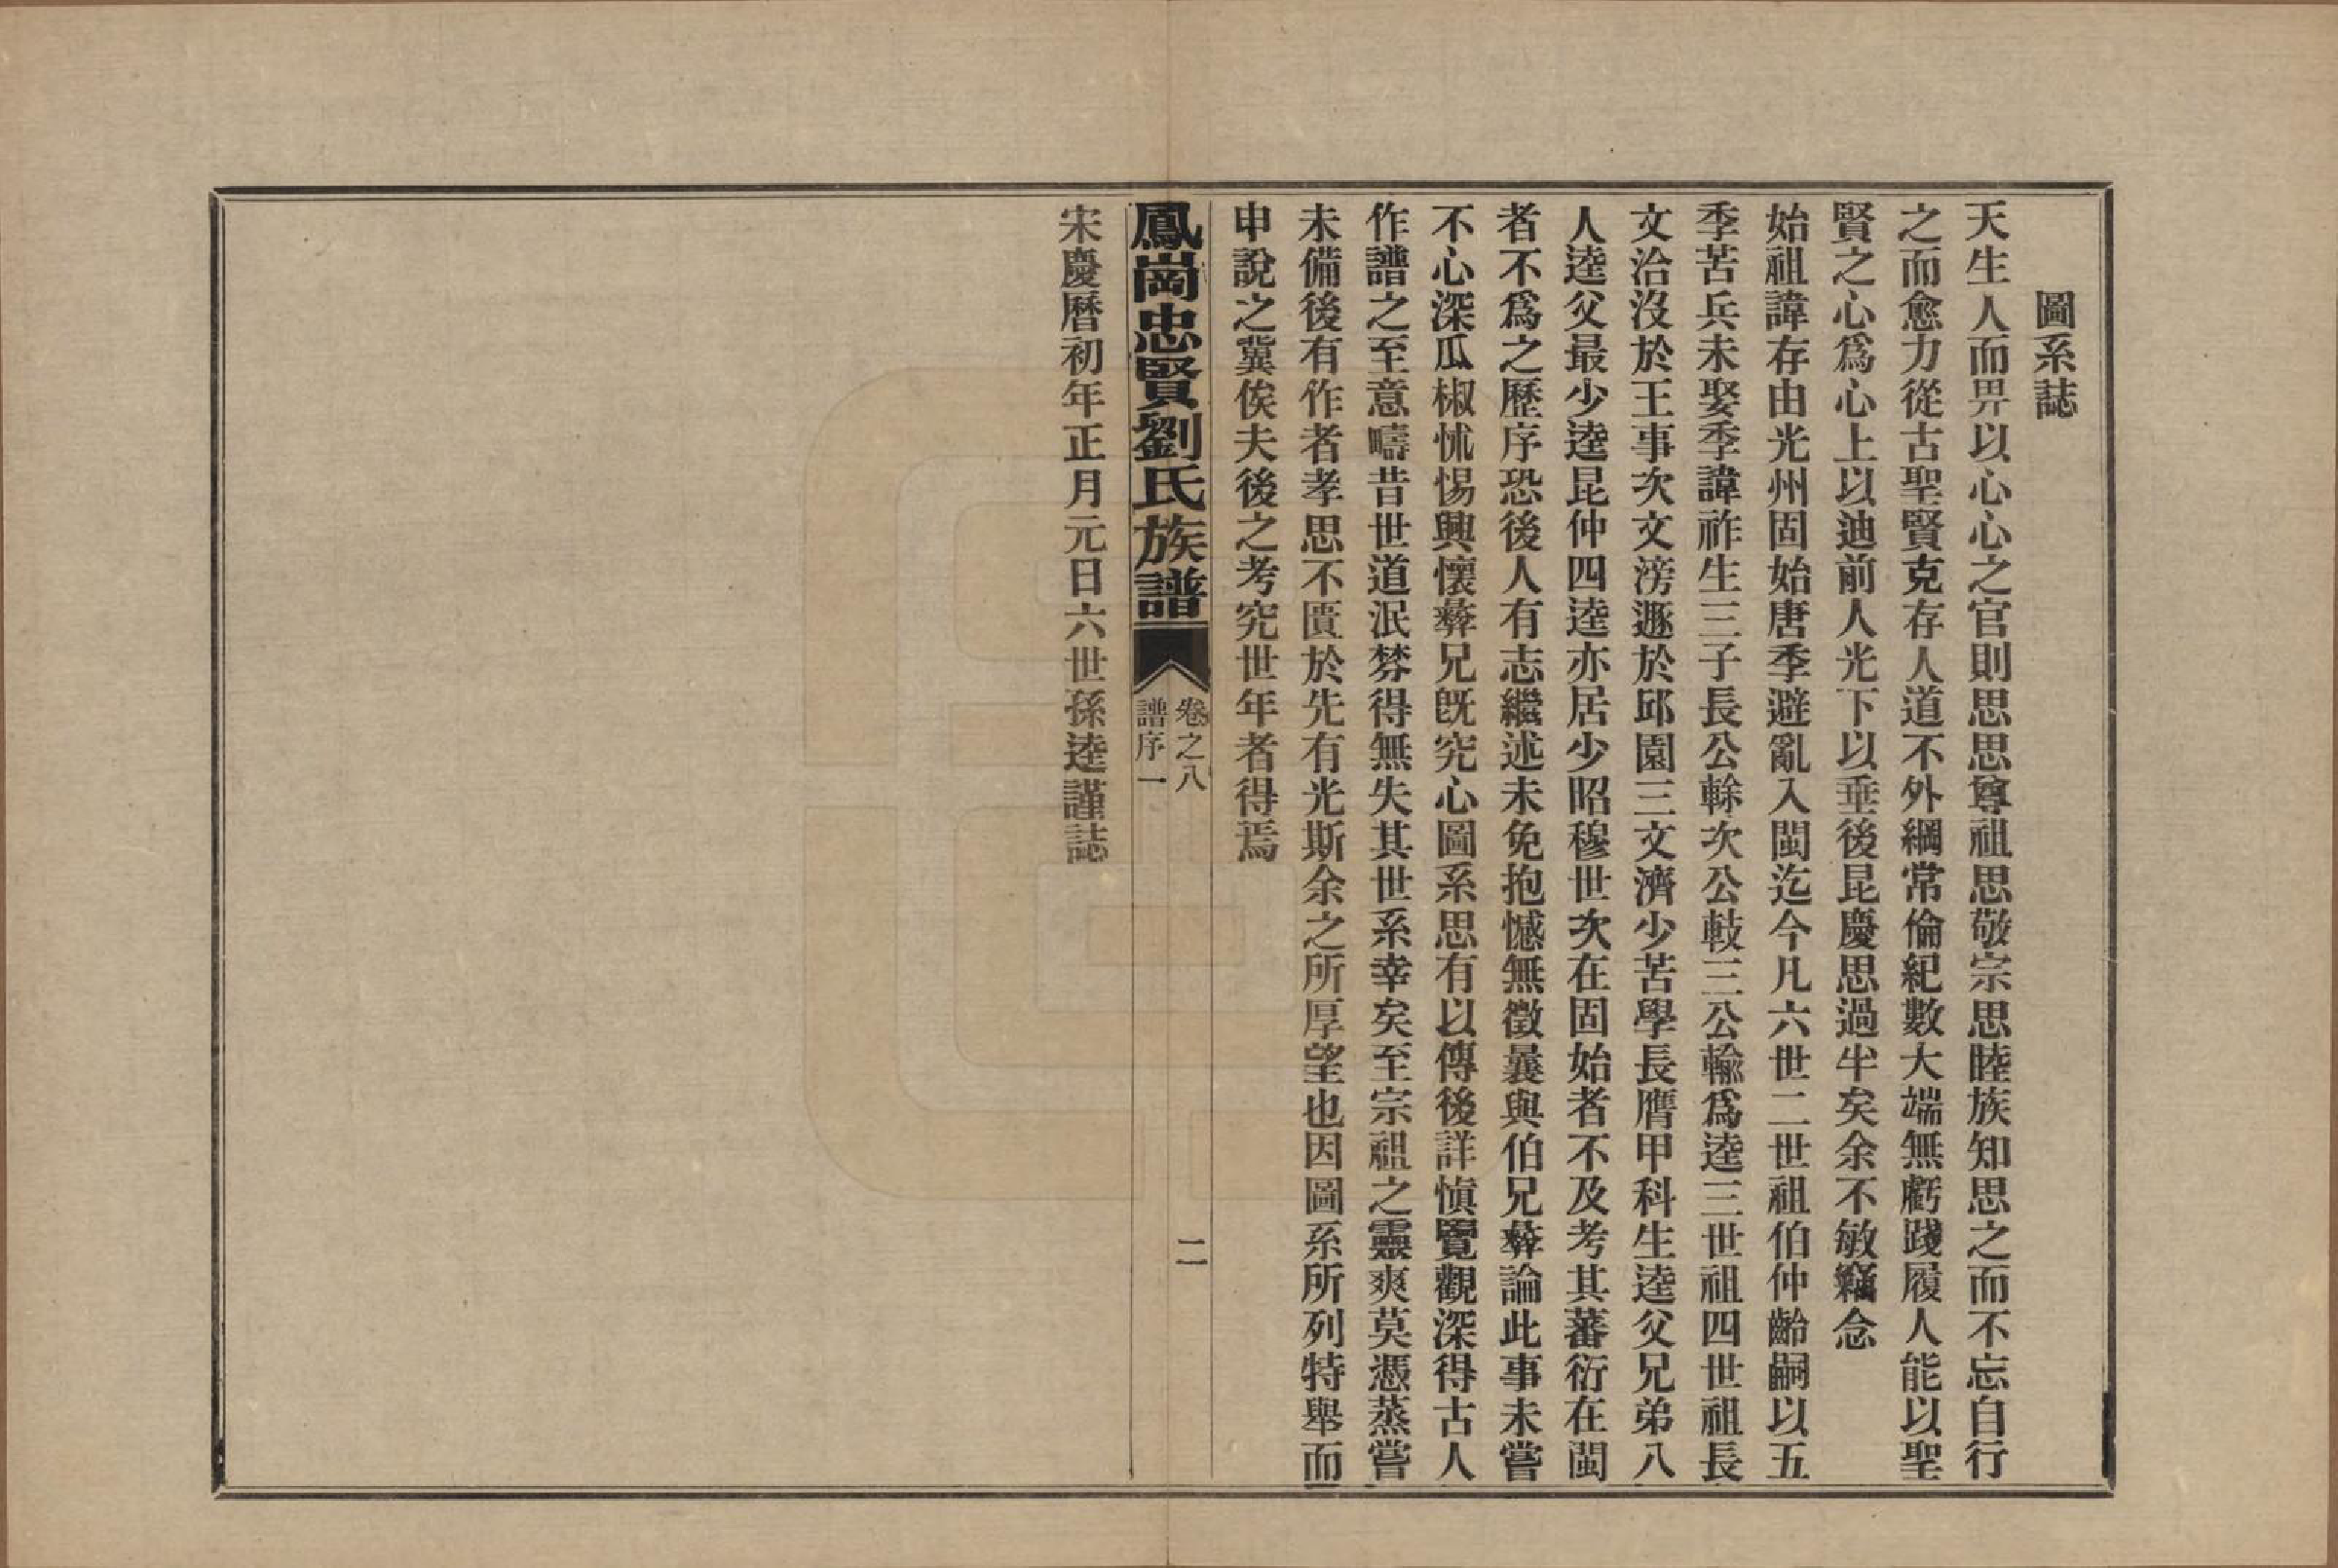 圖系誌
天生人而畀以心心之官則思思尊祖思敬宗思睦族知思之而不忘自行
之而愈力從古聖賢克存人道不外綱常倫紀數大端無虧踐履人能以聖
賢之心爲心上以迪前人光下以垂後昆慶思過半矣余不敏竊念
始祖諱存由光州固始唐季避亂入閩迄今凡六世二世祖伯仲齡嗣以五
季苦兵未娶季諱祚生三子長公䡵次公䡋三公輸爲逵三世祖四世祖長
文洽沒於王事次文滂遯於邱園三文濟少苦學長膺甲科生逵父兄弟八
人逵父最少逵昆仲四逵亦居少昭穆世次在固始者不及考其蕃衍在閩
者不爲之歷序恐後人有志繼述未免抱憾無徵曩與伯兄彝論此事未嘗
不心深瓜椒怵惕興懷彝兄旣究心圖系思有以傳後詳愼覽觀深得古人
作譜之至意疇昔世道泯棼得無失其世系幸矣至宗祖之靈爽莫憑蒸嘗
未備後有作者孝思不匱於先有光斯余之所厚望也因圖系所列特舉而
申說之冀俟夫後之考究世年者得焉
鳳崗忠賢劉氏族譜
卷之八
譜序一
二
宋慶曆初年正月元日六世孫逵謹誌